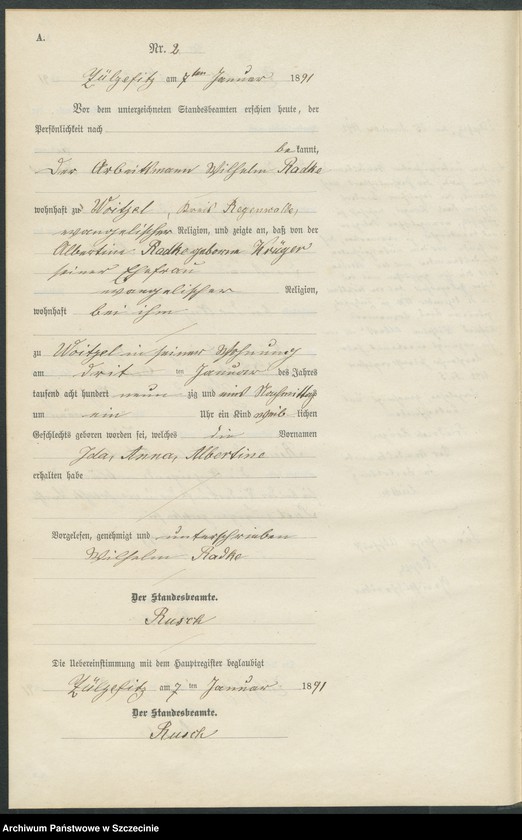 A.
Nr. 2
Zülzefitz am 7ten Januar 1891
Vor dem unterzeichneten Standesbeamten erschien heute, der
Persönlichkeit nach
bekannt,
der Arbeitsmann Wilhelm Radke
wohnhaft zu Woitzel, Kreis Regenwalde,
evangelischer Religion, und zeigte an, daß von der
Albertine Radke geborne Krüger
seiner Ehefrau
evangelischer Religion,
wohnhaft bei ihm
zu Woitzel in seiner Wohnung
am dritten Januar des Jahres
tausend acht hundert neunzig und eins Nachmittags
um ein Uhr ein Kind weiblichen
Geschlechts geboren worden sei, welches die Vornamen
Ida, Anna, Albertine
erhalten habe
Vorgelesen, genehmigt und unterschrieben
Wilhelm Radke
Der Standesbeamte.
Rusch
Die Uebereinstimmung mit dem Hauptregister beglaubigt
Zülzefitz am 7ten Januar 1891
Der Standesbeamte.
Rusch
Archiwum Państwowe w Szczecinie